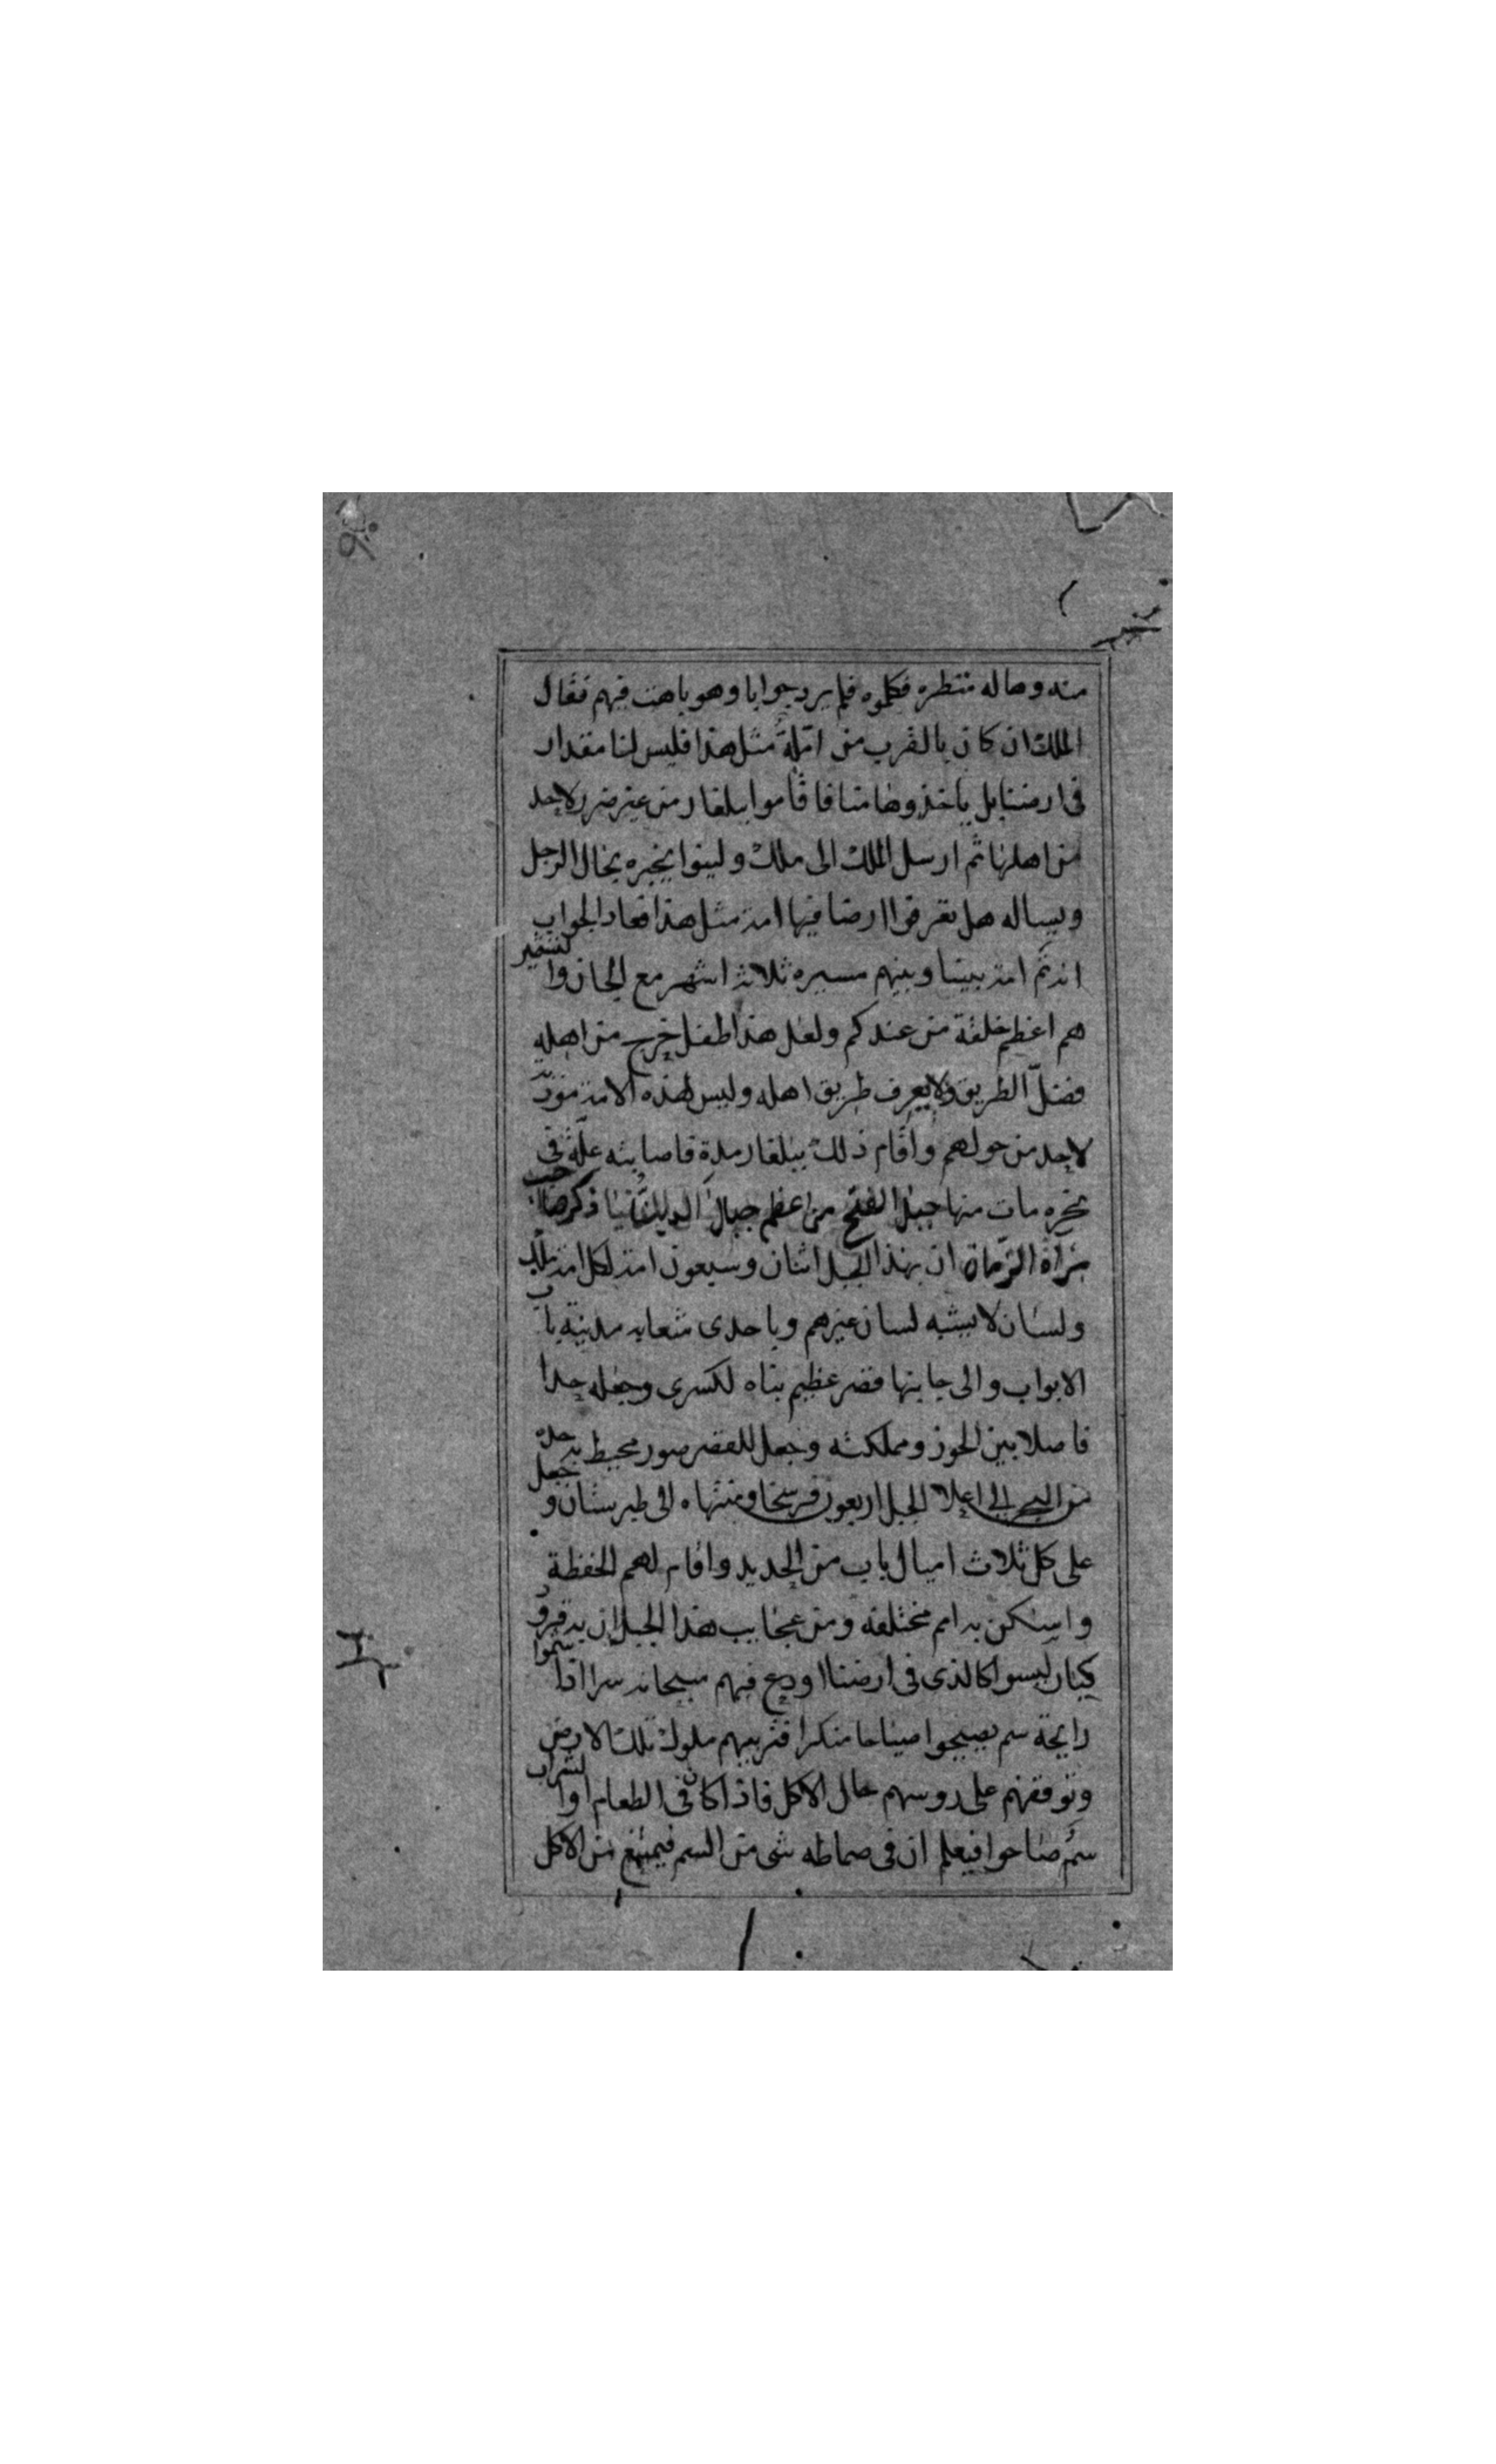 منه وهاله منظره فكلموه فلم يرد جوابا وهو باهت فيهم فقال
الملك ان كان بالقرب من امة مثل هذا فليس لنا مقدار
فى ارضنا بل ياخذوها منا فاقاموا ببلغار من غير ضرر لاحد
من اهلها ثم ارسل الملك الى ملك ولينوا يخبره بحال الرجل
ويساله هل تعرفوا ارضا فيها امة مثل هذا فعاد الجواب
انه ثم امة بيننا وبينهم مسيرة ثلاثة اشهر مع الحان والتشمير
هم اعظم خلقة من عندكم ولعل هذا طفل خرج من اهله
فضل الطريق ولا يعرف طريق اهله وليس لهذه الامة موذية
لاحد من حولهم واقام ذلك ببلغار مدة فاصابته علة فى
نحره مات منها جبل الفتح من اعظم جبال الدنيا ذكر صاحب
مراة الزمان ان بهذا الجبل اثنان وسبعون امة لكل امة ملك
ولسان لا يشبه لسان غيرهم وباحدى شعابه مدينة باب
الابواب والى جابنها قصر عظيم بناه لكسرى وجعله حدا
فاصلا بين الحوز ومملكته وجعل للقصر سور محيط به حده
من البحر الى اعلا الجبل اربعون فرسخا ومنتهاه الى طبرستان وجعل
على كل ثلاث اميال باب من الحديد واقام لهم الحفظة
واسكن به امم مختلفه ومن عجايب هذا الجبل ان به قرود
كبار ليسوا كالذى فى ارضنا اودع فيهم سبحانه سرا اذا شموا
رايحة سم يصيحوا صياحا منكرا فتربيهم ملوك تلك الارض
وتوقفهم على روسهم حال الاكل فاذا كان فى الطعام او الشراب
سم صاحوا فيعلم ان فى صماطه شى من السم فيمتنع من الاكل